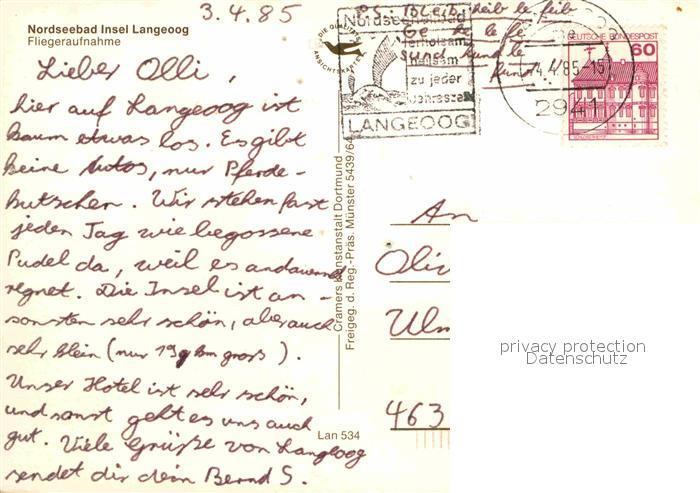 3.4.85
Nordseebad Insel Langeoog
Fliegeraufnahme
Lieber Olli,
hier auf Langeoog ist
kaum etwas los. Es gibt
keine Autos, nur Pferde-
kutschen. Wir stehen fast
jeden Tag wie begossene
Pudel da, weil es andauernd
regnet. Die Insel ist an-
sonsten sehr schön, aber auch
sehr klein (nur 19 qkm gross).
Unser Hotel ist sehr schön,
und sonst geht es uns auch
gut. Viele Grüße von Langeoog
sendet dir dein Bernd S.
Lan 534
Cramers Kunstanstalt Dortmund
Freigeg. d. Reg.-Präs. Münster 5439/64
DIE QUALITÄTS
ANSICHTSKARTE
P.S. Bleib
Nordseeheilbad
erholsam
heilsam
zu jeder
Jahreszeit
LANGEOOG
-4.4.85-15
2941
DEUTSCHE BUNDESPOST
60
An
Oli
Ulm
463
privacy protection
Datenschutz